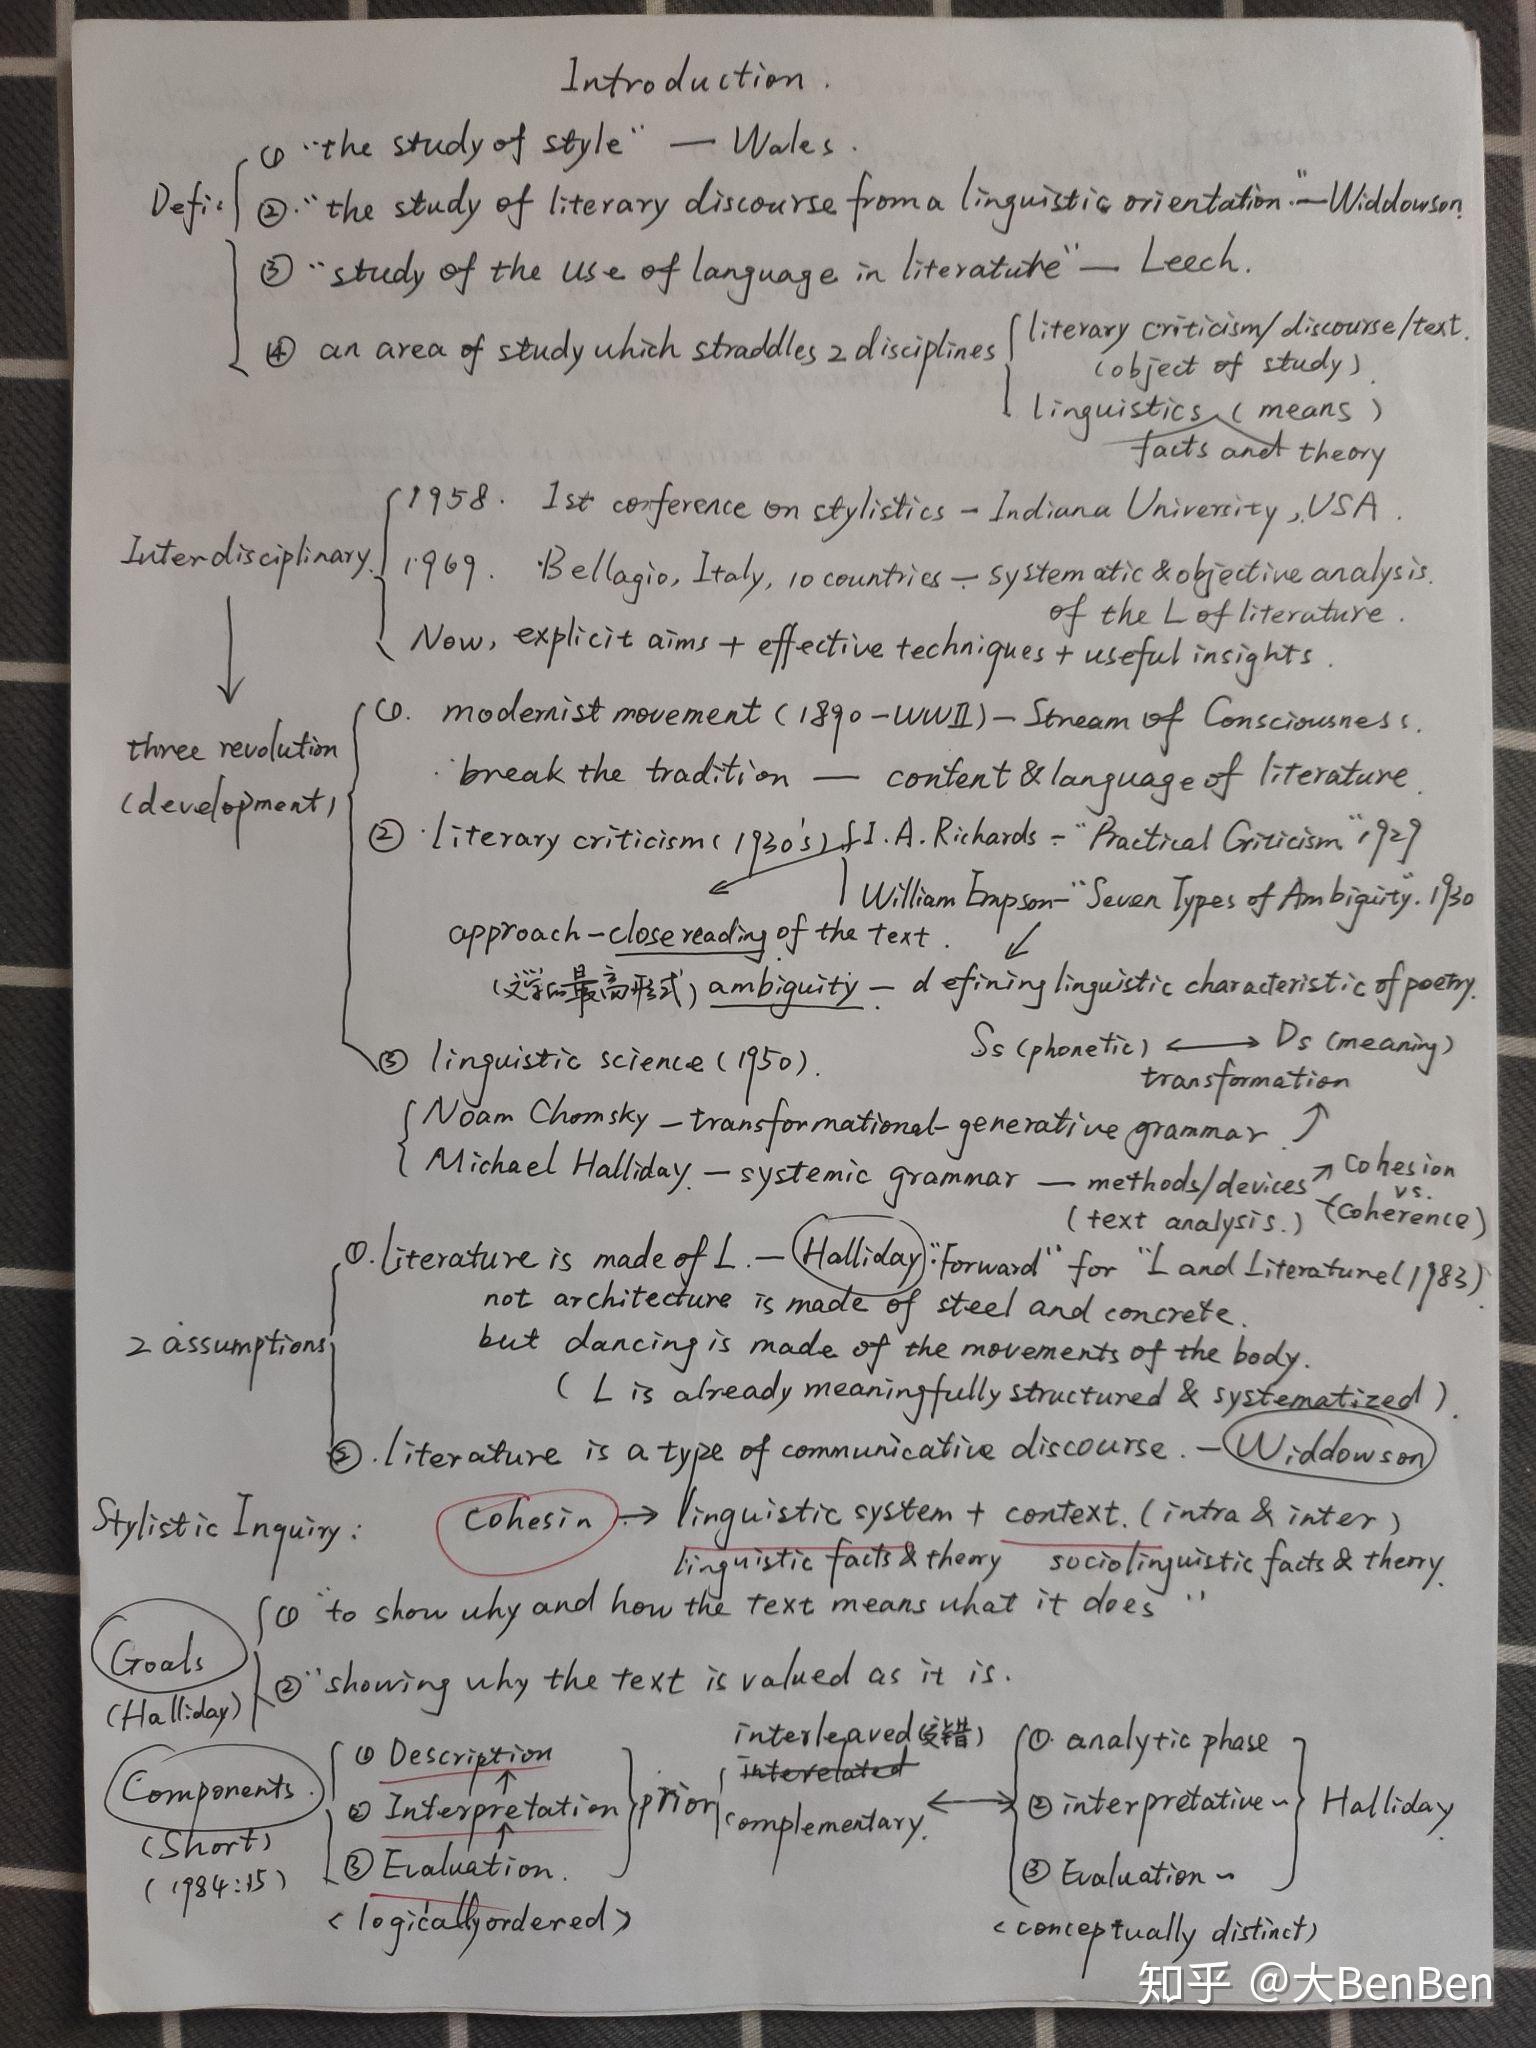 Introduction.
① "the study of style" — Wales.
Defi: ② "the study of literary discourse from a linguistic orientation." — Widdowson
③ "study of the use of language in literature" — Leech.
④ an area of study which straddles 2 disciplines
literary criticism/discourse/text.
(object of study)
linguistics (means)
facts and theory
1958. 1st conference on stylistics — Indiana University, USA.
Interdisciplinary
1969. Bellagio, Italy, 10 countries — systematic & objective analysis
of the L of literature.
Now, explicit aims + effective techniques + useful insights.
①. modernist movement (1890-WWII) — Stream of Consciousness.
three revolution
(development)
break the tradition — content & language of literature
② literary criticism (1930's) I. A. Richards - "Practical Criticism" 1929
William Empson - "Seven Types of Ambiguity". 1930
approach — close reading of the text.
(文学的最高形式) ambiguity — defining linguistic characteristic of poetry.
③ linguistic science (1950).
Ss (phonetic) ⟷ Ds (meaning)
transformation
Noam Chomsky — transformational-generative grammar ↗
Michael Halliday — systemic grammar — methods/devices ↗ cohesion
vs.
(text analysis.) (coherence)
2 assumptions
①. literature is made of L. — Halliday: "Forward" for "L and Literature (1983)
not architecture is made of steel and concrete.
but dancing is made of the movements of the body.
(L is already meaningfully structured & systematized).
②. literature is a type of communicative discourse. — Widdowson
Stylistic Inquiry: cohesin → linguistic system + context. (intra & inter)
linguistic facts & theory sociolinguistic facts & theory.
Goals
(Halliday)
① "to show why and how the text means what it does"
② "showing why the text is valued as it is.
Components.
(Short)
(1984:15)
① Description
② Interpretation
③ Evaluation.
<logically ordered>
prior
interleaved (交错)
interelated
complementary.
①. analytic phase
② interpretative ~
③ Evaluation ~
Halliday
<conceptually distinct>
知乎 @大BenBen